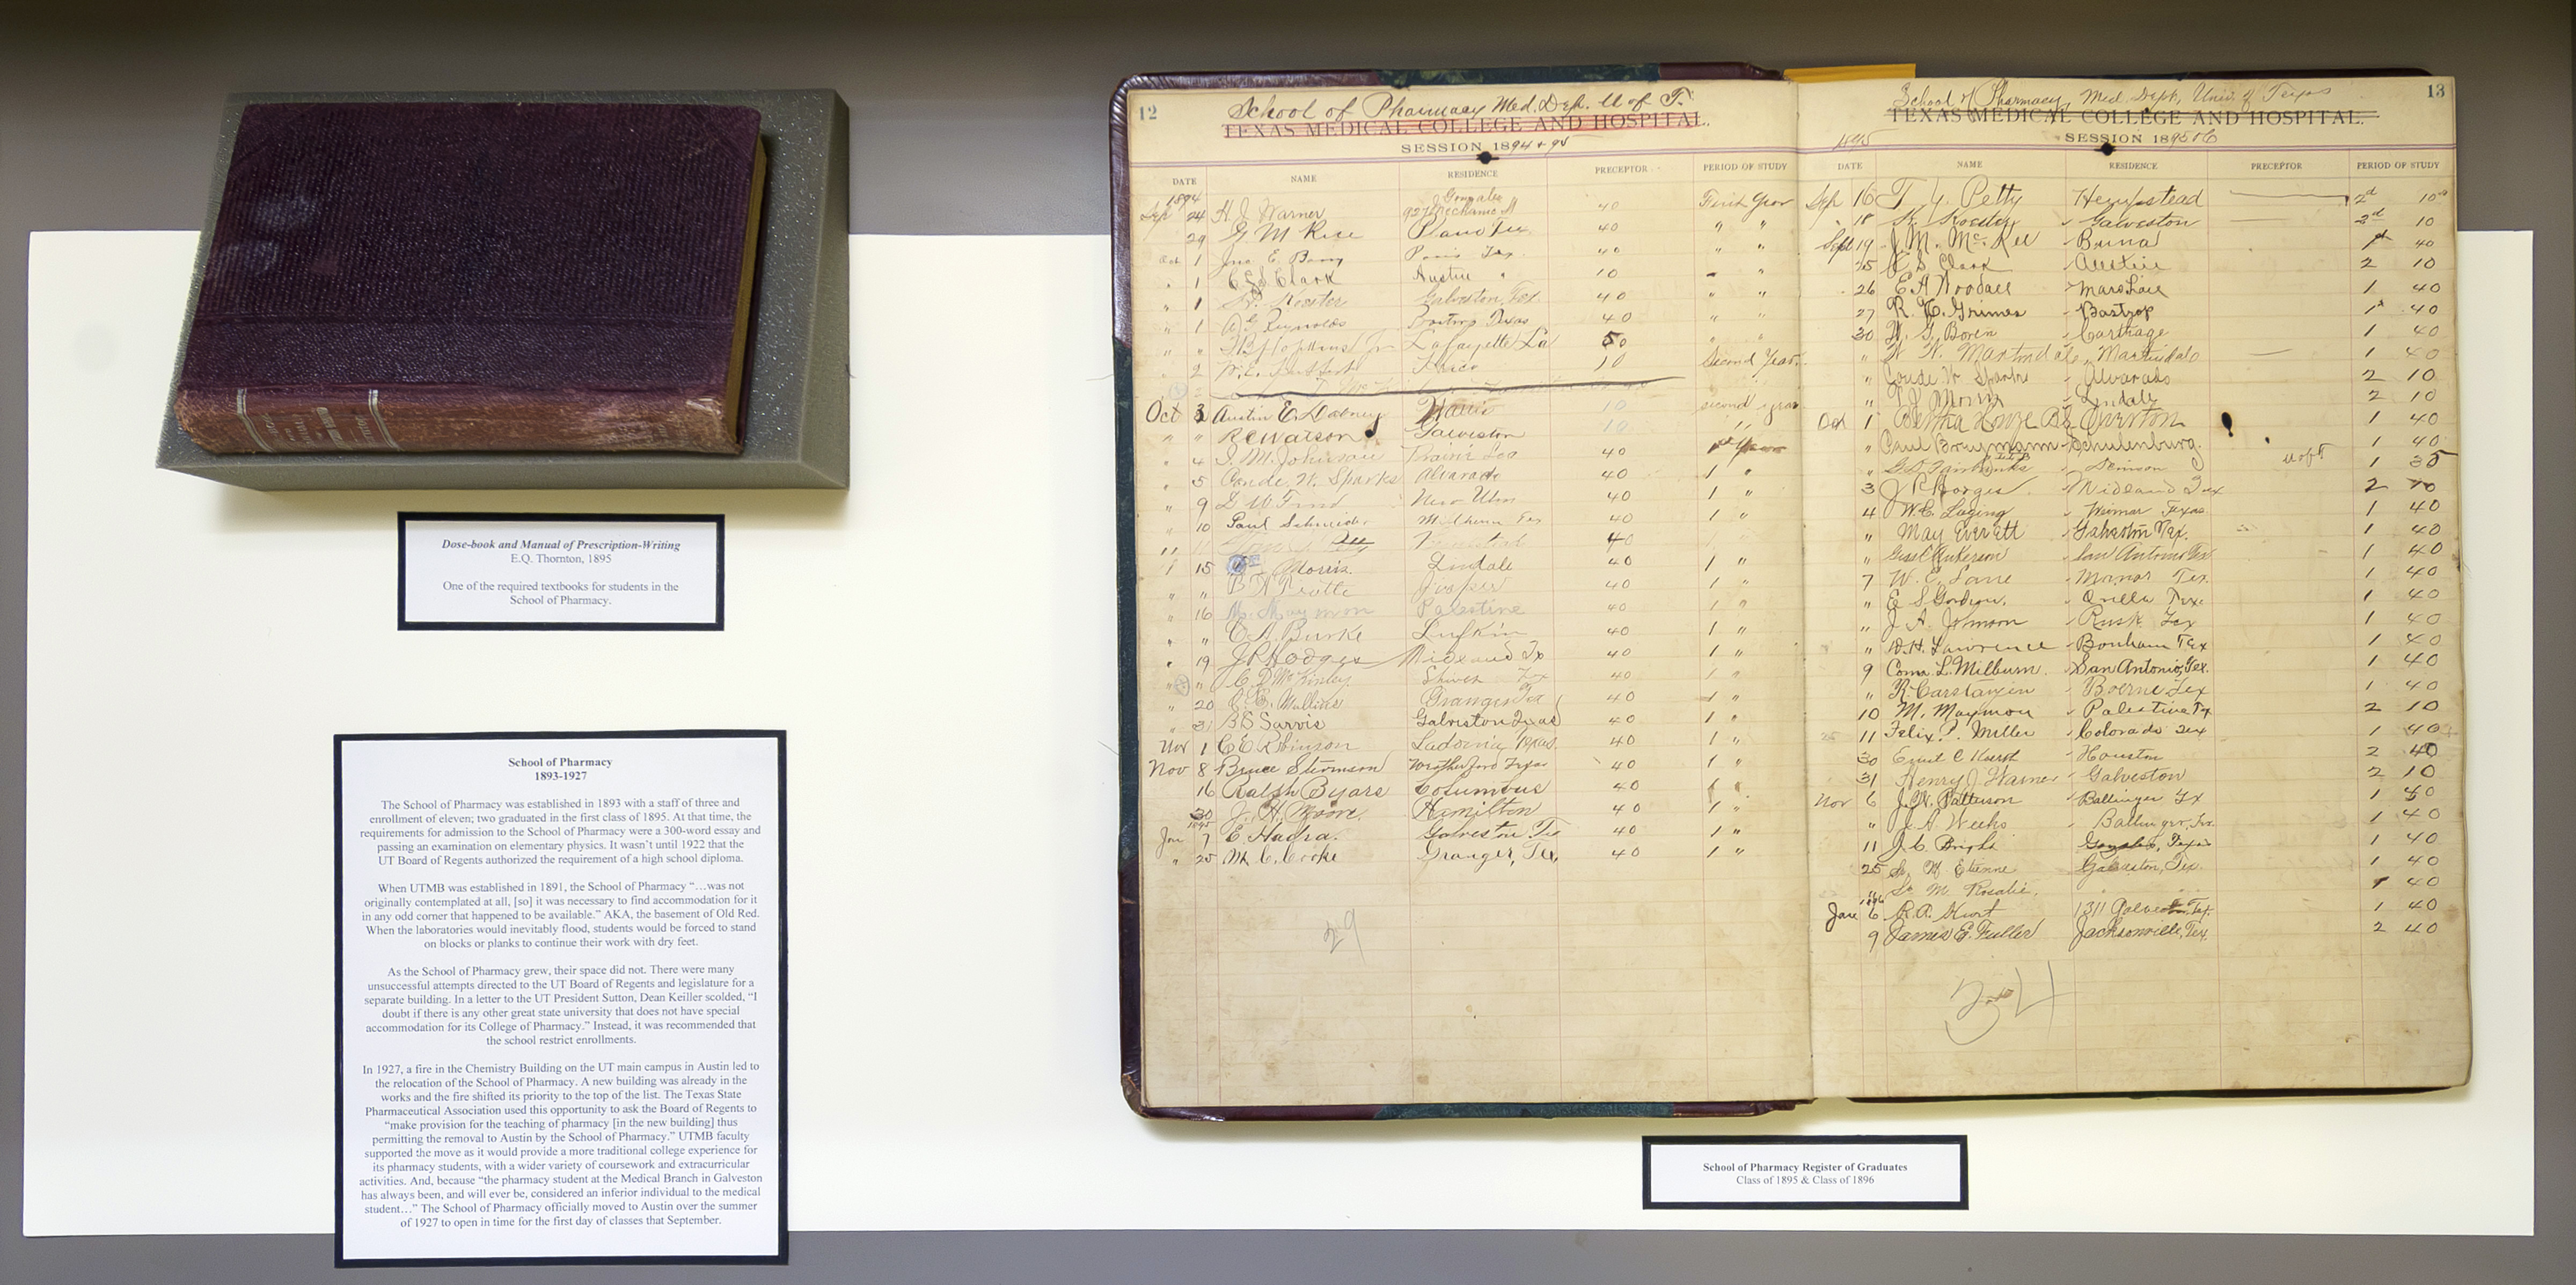 Dose-book and Manual of Prescription-Writing
E.Q. Thornton, 1895
One of the required textbooks for students in the
School of Pharmacy.
School of Pharmacy
1893-1927
The School of Pharmacy was established in 1893 with a staff of three and
enrollment of eleven; two graduated in the first class of 1895. At that time, the
requirements for admission to the School of Pharmacy were a 300-word essay and
passing an examination on elementary physics. It wasn't until 1922 that the
UT Board of Regents authorized the requirement of a high school diploma.
When UTMB was established in 1891, the School of Pharmacy “…was not
originally contemplated at all, [so] it was necessary to find accommodation for it
in any odd corner that happened to be available.” AKA, the basement of Old Red.
When the laboratories would inevitably flood, students would be forced to stand
on blocks or planks to continue their work with dry feet.
As the School of Pharmacy grew, their space did not. There were many
unsuccessful attempts directed to the UT Board of Regents and legislature for a
separate building. In a letter to the UT President Sutton, Dean Keiller scolded, “I
doubt if there is any other great state university that does not have special
accommodation for its College of Pharmacy.” Instead, it was recommended that
the school restrict enrollments.
In 1927, a fire in the Chemistry Building on the UT main campus in Austin led to
the relocation of the School of Pharmacy. A new building was already in the
works and the fire shifted its priority to the top of the list. The Texas State
Pharmaceutical Association used this opportunity to ask the Board of Regents to
“make provision for the teaching of pharmacy [in the new building] thus
permitting the removal to Austin by the School of Pharmacy.” UTMB faculty
supported the move as it would provide a more traditional college experience for
its pharmacy students, with a wider variety of coursework and extracurricular
activities. And, because “the pharmacy student at the Medical Branch in Galveston
has always been, and will ever be, considered an inferior individual to the medical
student…” The School of Pharmacy officially moved to Austin over the summer
of 1927 to open in time for the first day of classes that September.
12
School of Pharmacy Med. Dep. U of T.
TEXAS MEDICAL COLLEGE AND HOSPITAL.
SESSION 1894 + 95
DATE NAME RESIDENCE PRECEPTOR PERIOD OF STUDY
1894
Sep 24 H. J. Warner 927 Mechanic St 40 First Year
29 G M Rice Plano Tex 40 " "
Oct 1 Jno E. Barry Paris Tex. 40 " "
" 1 Clark Austin " 10 "
" 1 Koester Galveston, Tex. 40 " "
" 1 Reynolds Bastrop Texas 40 " "
" " Hopkins Jr Lafayette La 50
" 2 W. E. Frisco 10 Second Year.
Oct 3 Austin E. Dabney 10 second year
" " R E Watson Galveston 10 "
" 4 J. M. Johnson 40
" 5 Conde. W. Sparks Alvarado 40 1 "
" 9 New Ulm 40 1 "
" 10 Paul Schneider 40 1 "
11 40
" 15 Morris. Lindale 40 1 "
" " Jasper 40 1 "
" 16 M. Maymon Palestine 40 1 "
" " C A. Burke Lufkin 40 1 "
" 19 J R Hodges Midland Tx 40 1 "
" " C. D McKinley 40 1 "
" 20 Mullins Granger Tex 40 1 "
" 31 B S Sarvis Galveston Texas 40 1 "
Nov 1 C E Robinson Ladonia Texas. 40 1 "
Nov 8 Bruce Stimson Weatherford Texas 40 1 "
16 Ralph Byars Columbus 40
30 J. H. Moore. Hamilton 40 1 "
1895
Jan 7 E. Hadra. Galveston Tex 40 1 "
" 25 C. Cooke Granger, Tex, 40 1 "
29
13
School of Pharmacy, Med. Dept, Univ of Texas
TEXAS MEDICAL COLLEGE AND HOSPITAL.
1895 SESSION 1895 to 6
DATE NAME RESIDENCE PRECEPTOR PERIOD OF STUDY
Sep 16 T. Y. Petty Hempstead 2d 10
" 18 Koester Galveston 2d 10
Sept 19 J. M. McKee Buna 1st 40
25 Clark Austin 2 10
26 E A Woodall 1 40
27 R. E. Grimes Bastrop 1st 40
30 W. G. Boren Carthage 1 40
" W. W. Martindale Martindale 1 40
" Conde W Sparks Alvarado 2 10
" Morris Lindale 2 10
Oct 1 Overton 1 40
" Paul Braymann Schulenburg. 1 40
" Fairbanks U of T 1 35
3 J R Hodges. Midland Tex 2
4 W. C. Luging Weimar Texas 1 40
" May Everett Galveston Tex. 1 40
" San Antonio Tex 1 40
7 W. E. Lane Manor Tex. 1 40
" E. S. Gordon. Tex. 1 40
" J A. Johnson Rusk Tex 1 40
" D. H. Lawrence Bonham Tex 1 40
9 L. Milburn. San Antonio, Tex. 1 40
" R. Carstanjen Boerne Tex 1 40
10 M. Maymon Palestine Tx 2 10
11 Felix P. Miller Colorado Tex 1 40
30 Houston 2 40
31 Henry J Warner Galveston 2 10
Nov 6 J. W. Patterson Ballinger Tx 1 40
" J. A Weeks Ballinger, Tex. 1 40
11 J. C. Bright Texas 1 40
25 Sr. M Etienne Galveston, Tex. 1 40
" Sr M Rosalie. 1 40
1896
Jan 6 R. P. 1311 Tex. 1 40
9 James E. Fuller Jacksonville, Tex. 2 40
34
School of Pharmacy Register of Graduates
Class of 1895 & Class of 1896